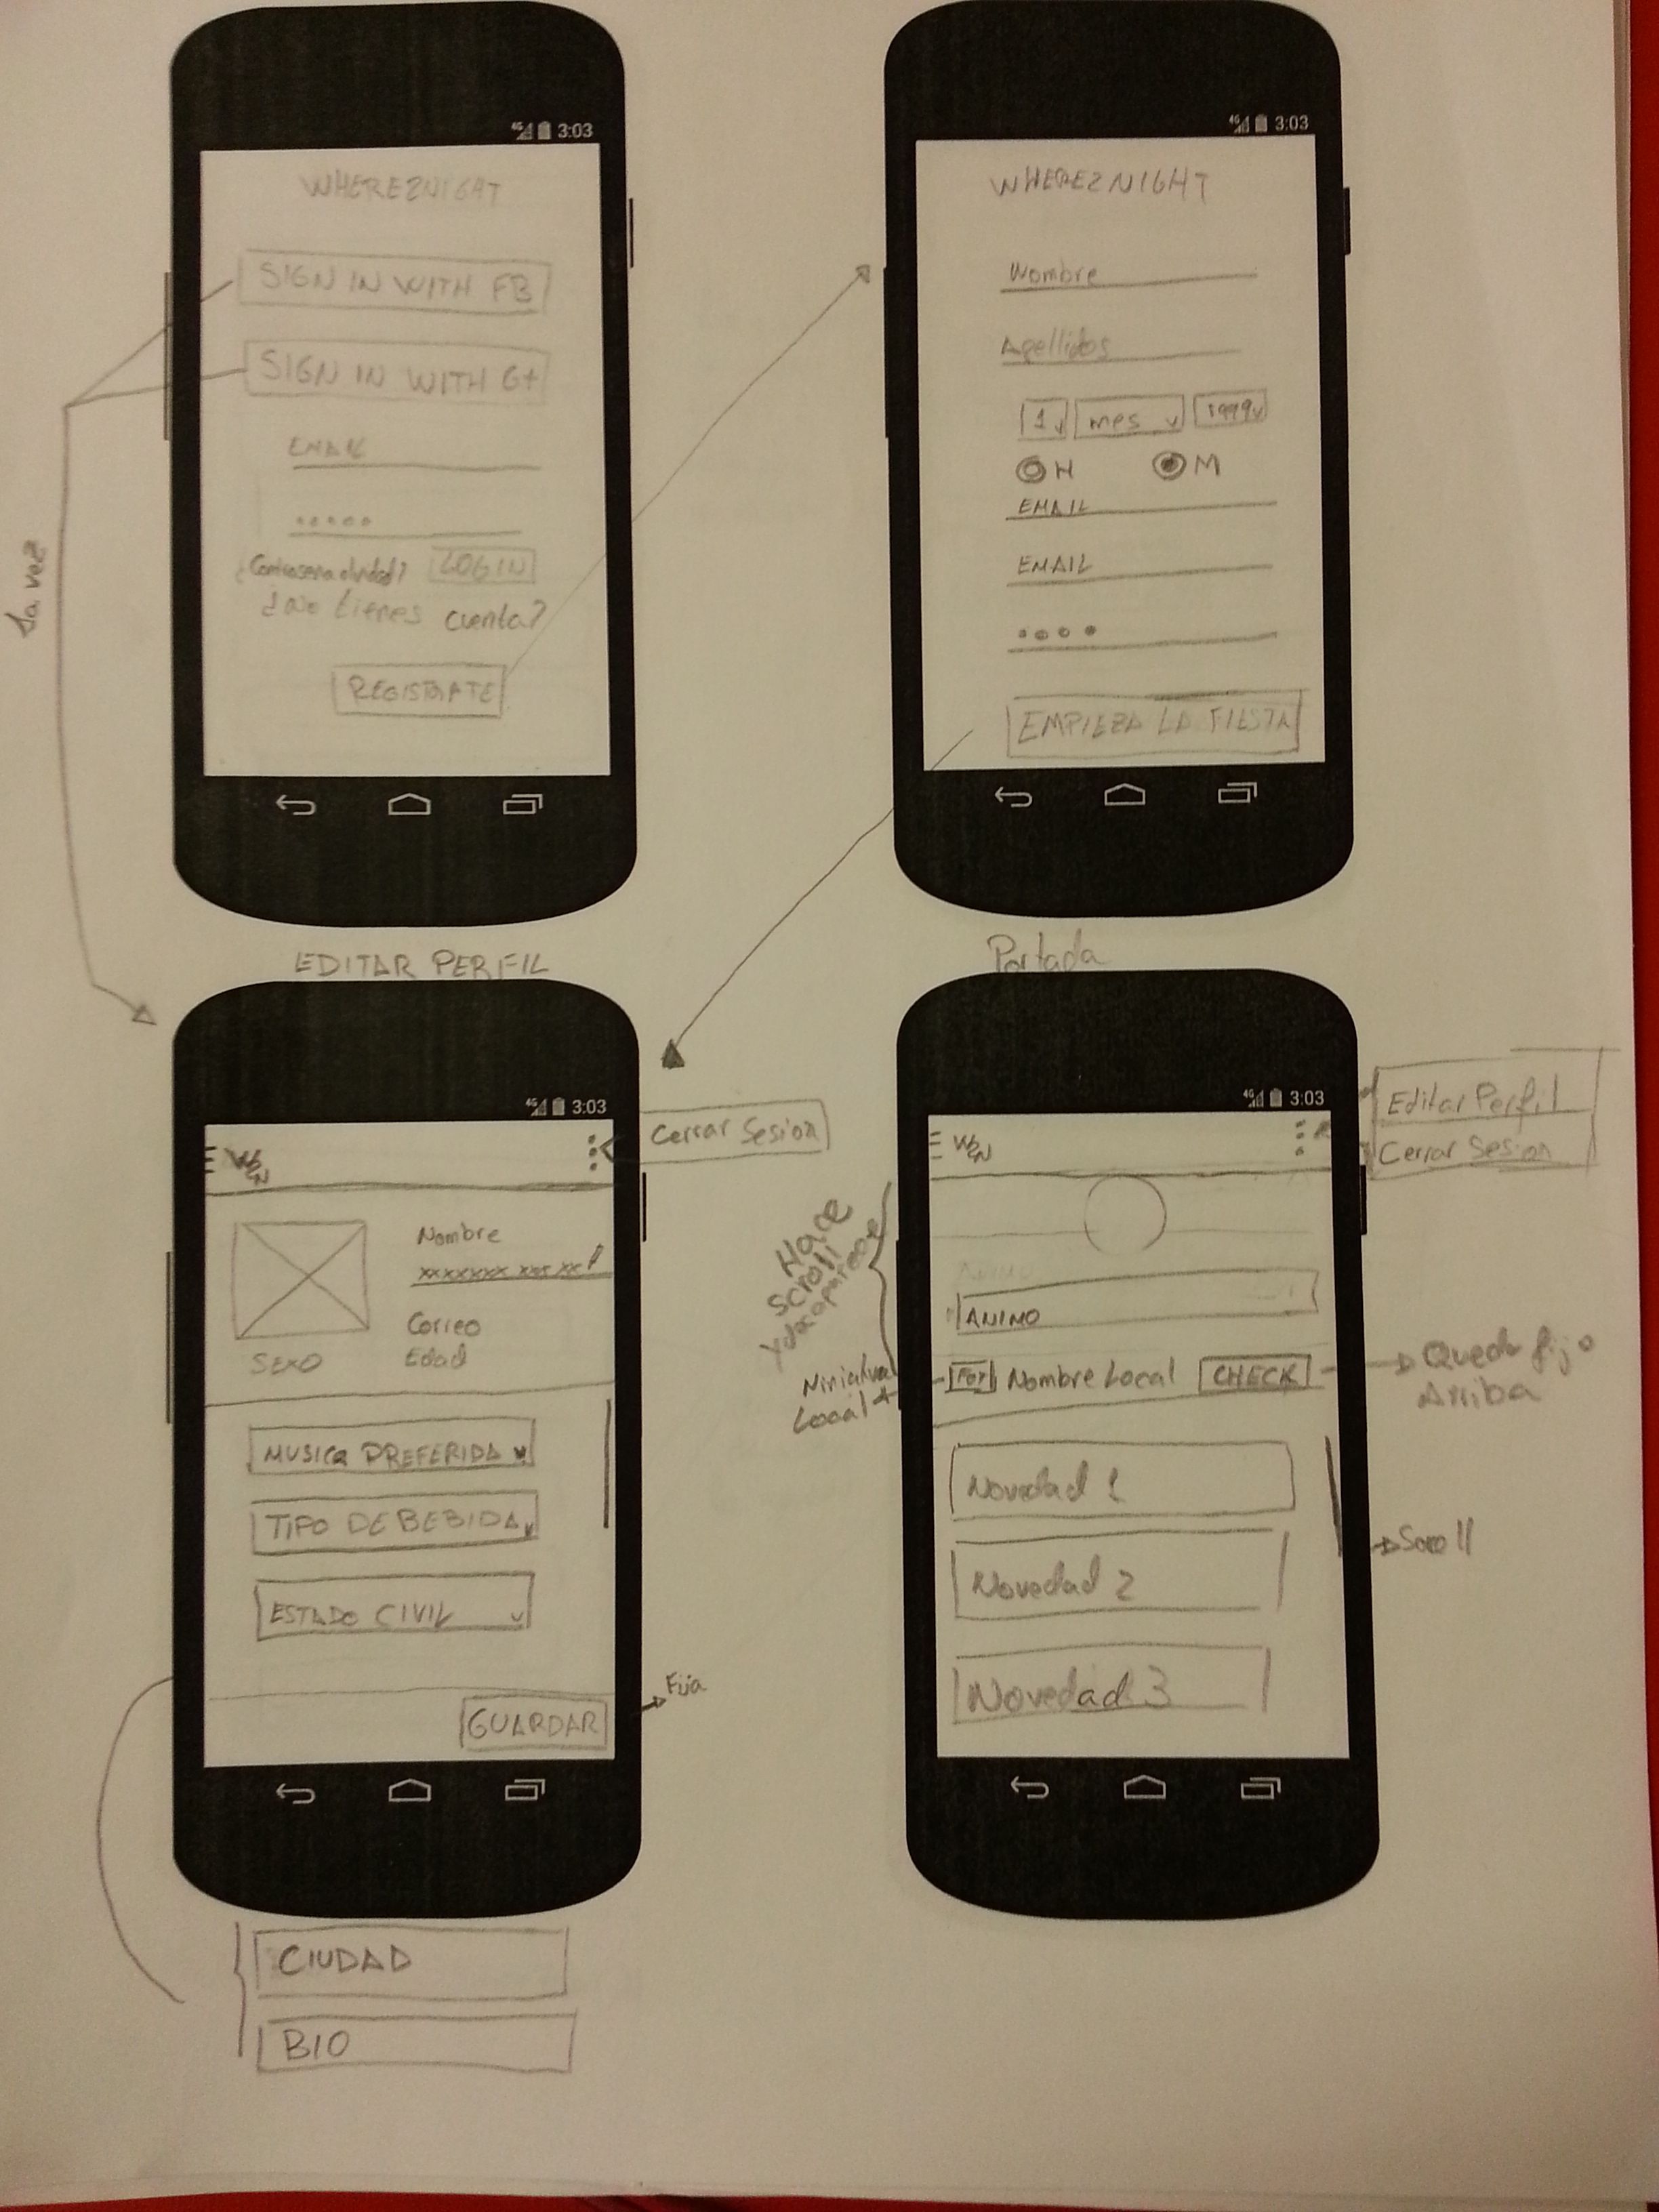 3:03
WHERE2NIGHT
SIGN IN WITH FB
SIGN IN WITH G+
EMAIL
¿Contraseña olvidad?
LOGIN
¿No tienes cuenta?
REGISTRATE
1a vez
3:03
WHERE2NIGHT
Nombre
Apellidos
1 mes 1999
H M
EMAIL
EMAIL
EMPIEZA LA FIESTA
EDITAR PERFIL
3:03
W2N
Cerrar Sesion
Nombre
xxxxxxx xxx xx
Correo
SEXO
Edad
MUSICA PREFERIDA
TIPO DE BEBIDA
ESTADO CIVIL
GUARDAR
Fija
CIUDAD
BIO
Portada
3:03
W2N
Editar Perfil
Cerrar Sesion
Hace
Scroll
y desaparece
ANIMO
Miniatura
Local
FOT Nombre Local CHECK
Queda fijo
Arriba
Novedad 1
Novedad 2
Novedad 3
Scroll